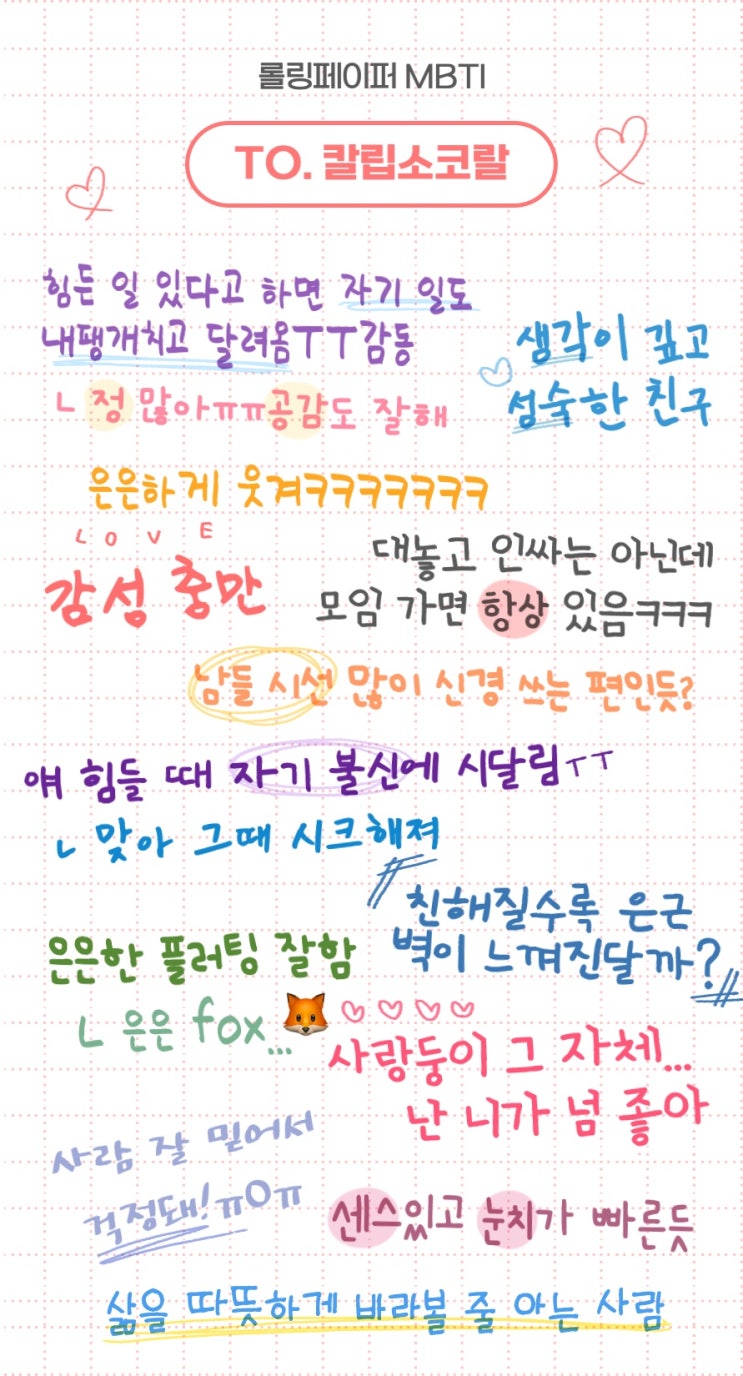 롤링페이퍼 MBTI
TO. 칼립소코랄
힘든 일 있다고 하면 자기 일도
내팽개치고 달려옴ㅜㅜ감동
ㄴ 정 많아ㅠㅠ공감도 잘해
생각이 깊고
성숙한 친구
은은하게 웃겨ㅋㅋㅋㅋㅋㅋㅋ
LOVE
감성 충만
대놓고 인싸는 아닌데
모임 가면 항상 있음ㅋㅋㅋ
남들 시선 많이 신경 쓰는 편인듯?
얘 힘들 때 자기 불신에 시달림ㅜㅜ
ㄴ 맞아 그때 시크해져
친해질수록 은근
벽이 느껴진달까?
은은한 플러팅 잘함
ㄴ 은은 fox...
사랑둥이 그 자체...
난 니가 넘 좋아
사람 잘 믿어서
걱정돼!ㅠㅇㅠ
센스있고 눈치가 빠른듯
삶을 따뜻하게 바라볼 줄 아는 사람